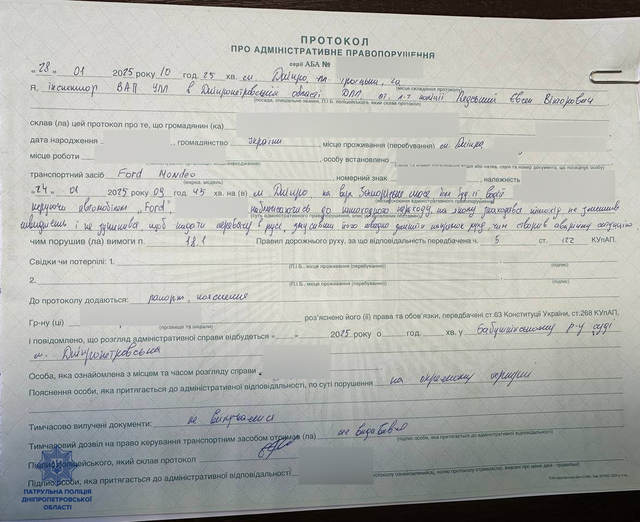 ПРОТОКОЛ
ПРО АДМІНІСТРАТИВНЕ ПРАВОПОРУШЕННЯ
серії АБА №
"28" 01 2025 року 10 год. 25 хв. м. Дніпро, пл.
Я, інспектор ВАП УПП в Дніпропетровській області ДПП
склав (ла) цей протокол про те, що громадянин (ка)
дата народження , громадянство України місце проживання (перебування) м. Дніпро,
місце роботи , особу встановлено
транспортний засіб Ford Mondeo номерний знак , належність
"24" 01 2025 року 09 год. 45 хв. на (в) м. Дніпро на вул. Запорізьке шосе
керуючи автомобілем "Ford", наближаючись до пішохідного переходу, на якому знаходився пішохід, не зменшив
швидкість і не зупинився, щоб надати перевагу в русі, чим створив аварійну ситуацію
чим порушив (ла) вимоги п. 18.1 Правил дорожнього руху, за що відповідальність передбачена ч. 5 ст. 122 КУпАП.
Свідки чи потерпілі: 1.
(П.І.Б., місце проживання (перебування)) (підпис)
2.
(П.І.Б., місце проживання (перебування)) (підпис)
До протоколу додаються: рапорт, пояснення
Гр-ну (ці) роз'яснено його (її) права та обов'язки, передбачені ст.63 Конституції України, ст.268 КУпАП,
(прізвище та ініціали)
і повідомлено, що розгляд адміністративної справи відбудеться "  "  2025 року о год. хв. у Бабушкінському р-у суді
м. Дніпропетровська
Особа, яка ознайомлена з місцем та часом розгляду справи
Пояснення особи, яка притягається до адміністративної відповідальності, по суті порушення на окремому аркуші
Тимчасово вилучені документи: не вилучалися
Тимчасовий дозвіл на право керування транспортним засобом отримав (ла) не видавався
(підпис особи, яка притягається до адміністративної відповідальності)
Підпис поліцейського, який склав протокол
Підпис особи, яка притягається до адміністративної відповідальності
ПАТРУЛЬНА ПОЛІЦІЯ
ДНІПРОПЕТРОВСЬКОЇ
ОБЛАСТІ